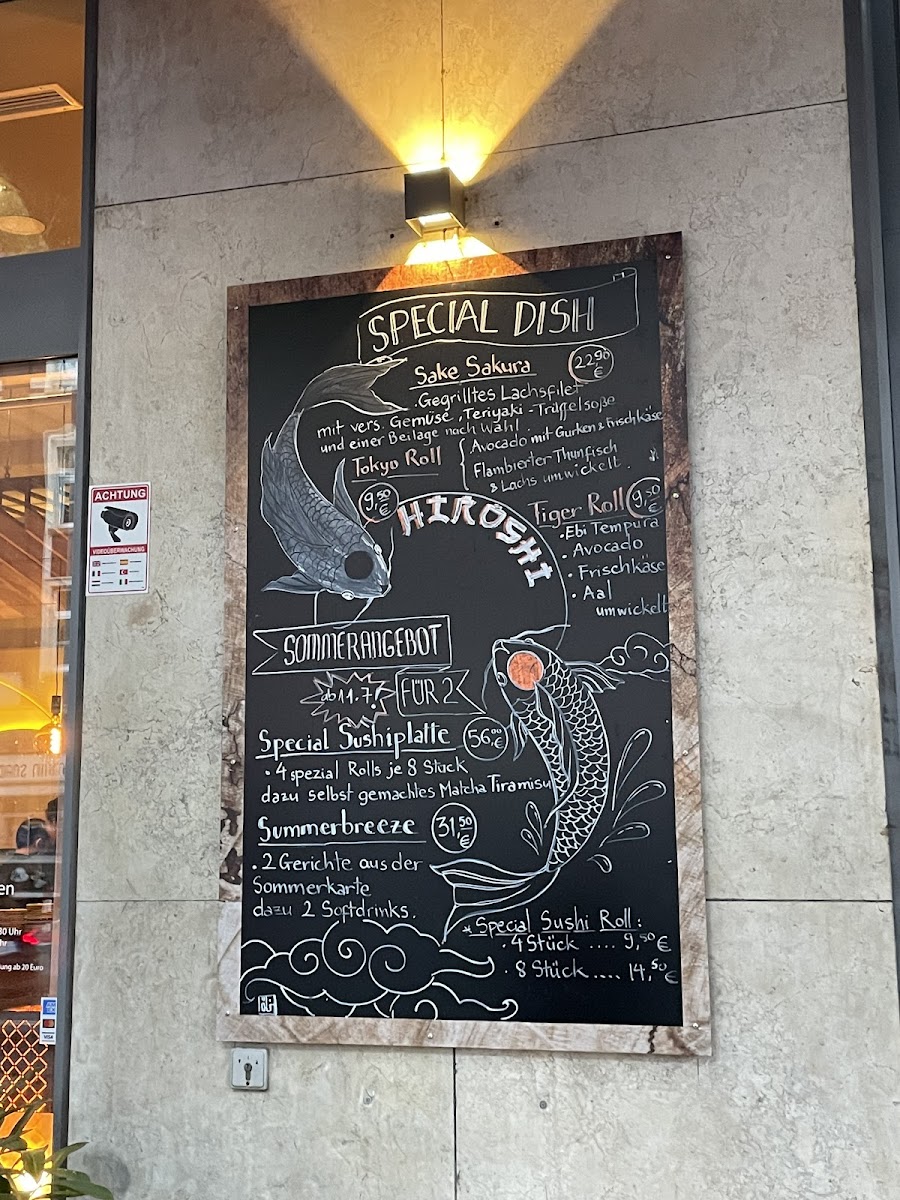 SPECIAL DISH
Sake Sakura 22,90 €
. Gegrilltes Lachsfilet
mit vers. Gemüse, Teriyaki-Trüffelsoße
und einer Beilage nach Wahl.
Tokyo Roll
9,50 €
Avocado mit Gurken & Frischkäse
Flambierter Thunfisch
& Lachs umwickelt.
HIROSHI
Tiger Roll 9,50 €
• Ebi Tempura
• Avocado
• Frischkäse
• Aal
umwickelt
SOMMERANGEBOT
ab 11.7!
FÜR 2
Special Sushiplatte 56,00 €
• 4 spezial Rolls je 8 Stück
dazu selbst gemachtes Matcha Tiramisu
Summerbreeze 31,50 €
• 2 Gerichte aus der
Sommerkarte
dazu 2 Softdrinks.
* Special Sushi Roll:
. 4 Stück .... 9,50 €
. 8 Stück .... 14,50 €
ACHTUNG
VIDEOÜBERWACHUNG
en
30 Uhr
hr
ung ab 20 Euro
VISA